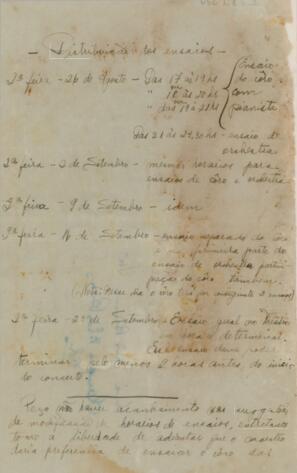 - Distribuição dos ensaios -
2ª feira - 26 de Agosto - Das 17 às 19 hs
" 18 às 20 hs
" das 19 às 21 hs
Ensaio
do côro
com
pianista
Das 21 às 22,30 hs - ensaio de
orchestra
2ª feira - 2 de Setembro - mesmos horarios para
ensaios de côro e orchestra
2ª feira - 9 de Setembro - idem
2ª feira - 16 de Setembro - ensaio separado do côro
e na primeira parte do
ensaio de orchestra partici-
pação do côro tambem.
(Nota: Nesse dia o côro
2ª feira - 23 de Setembro - Ensaio geral no Theatro
Este ensaio deve
terminar pelo menos 2 horas antes do inicio
do concerto.
Peço
de modificação de horarios de ensaios, entretanto
tomo a liberdade de adeantar que o
daria preferencia de ensaiar o côro das